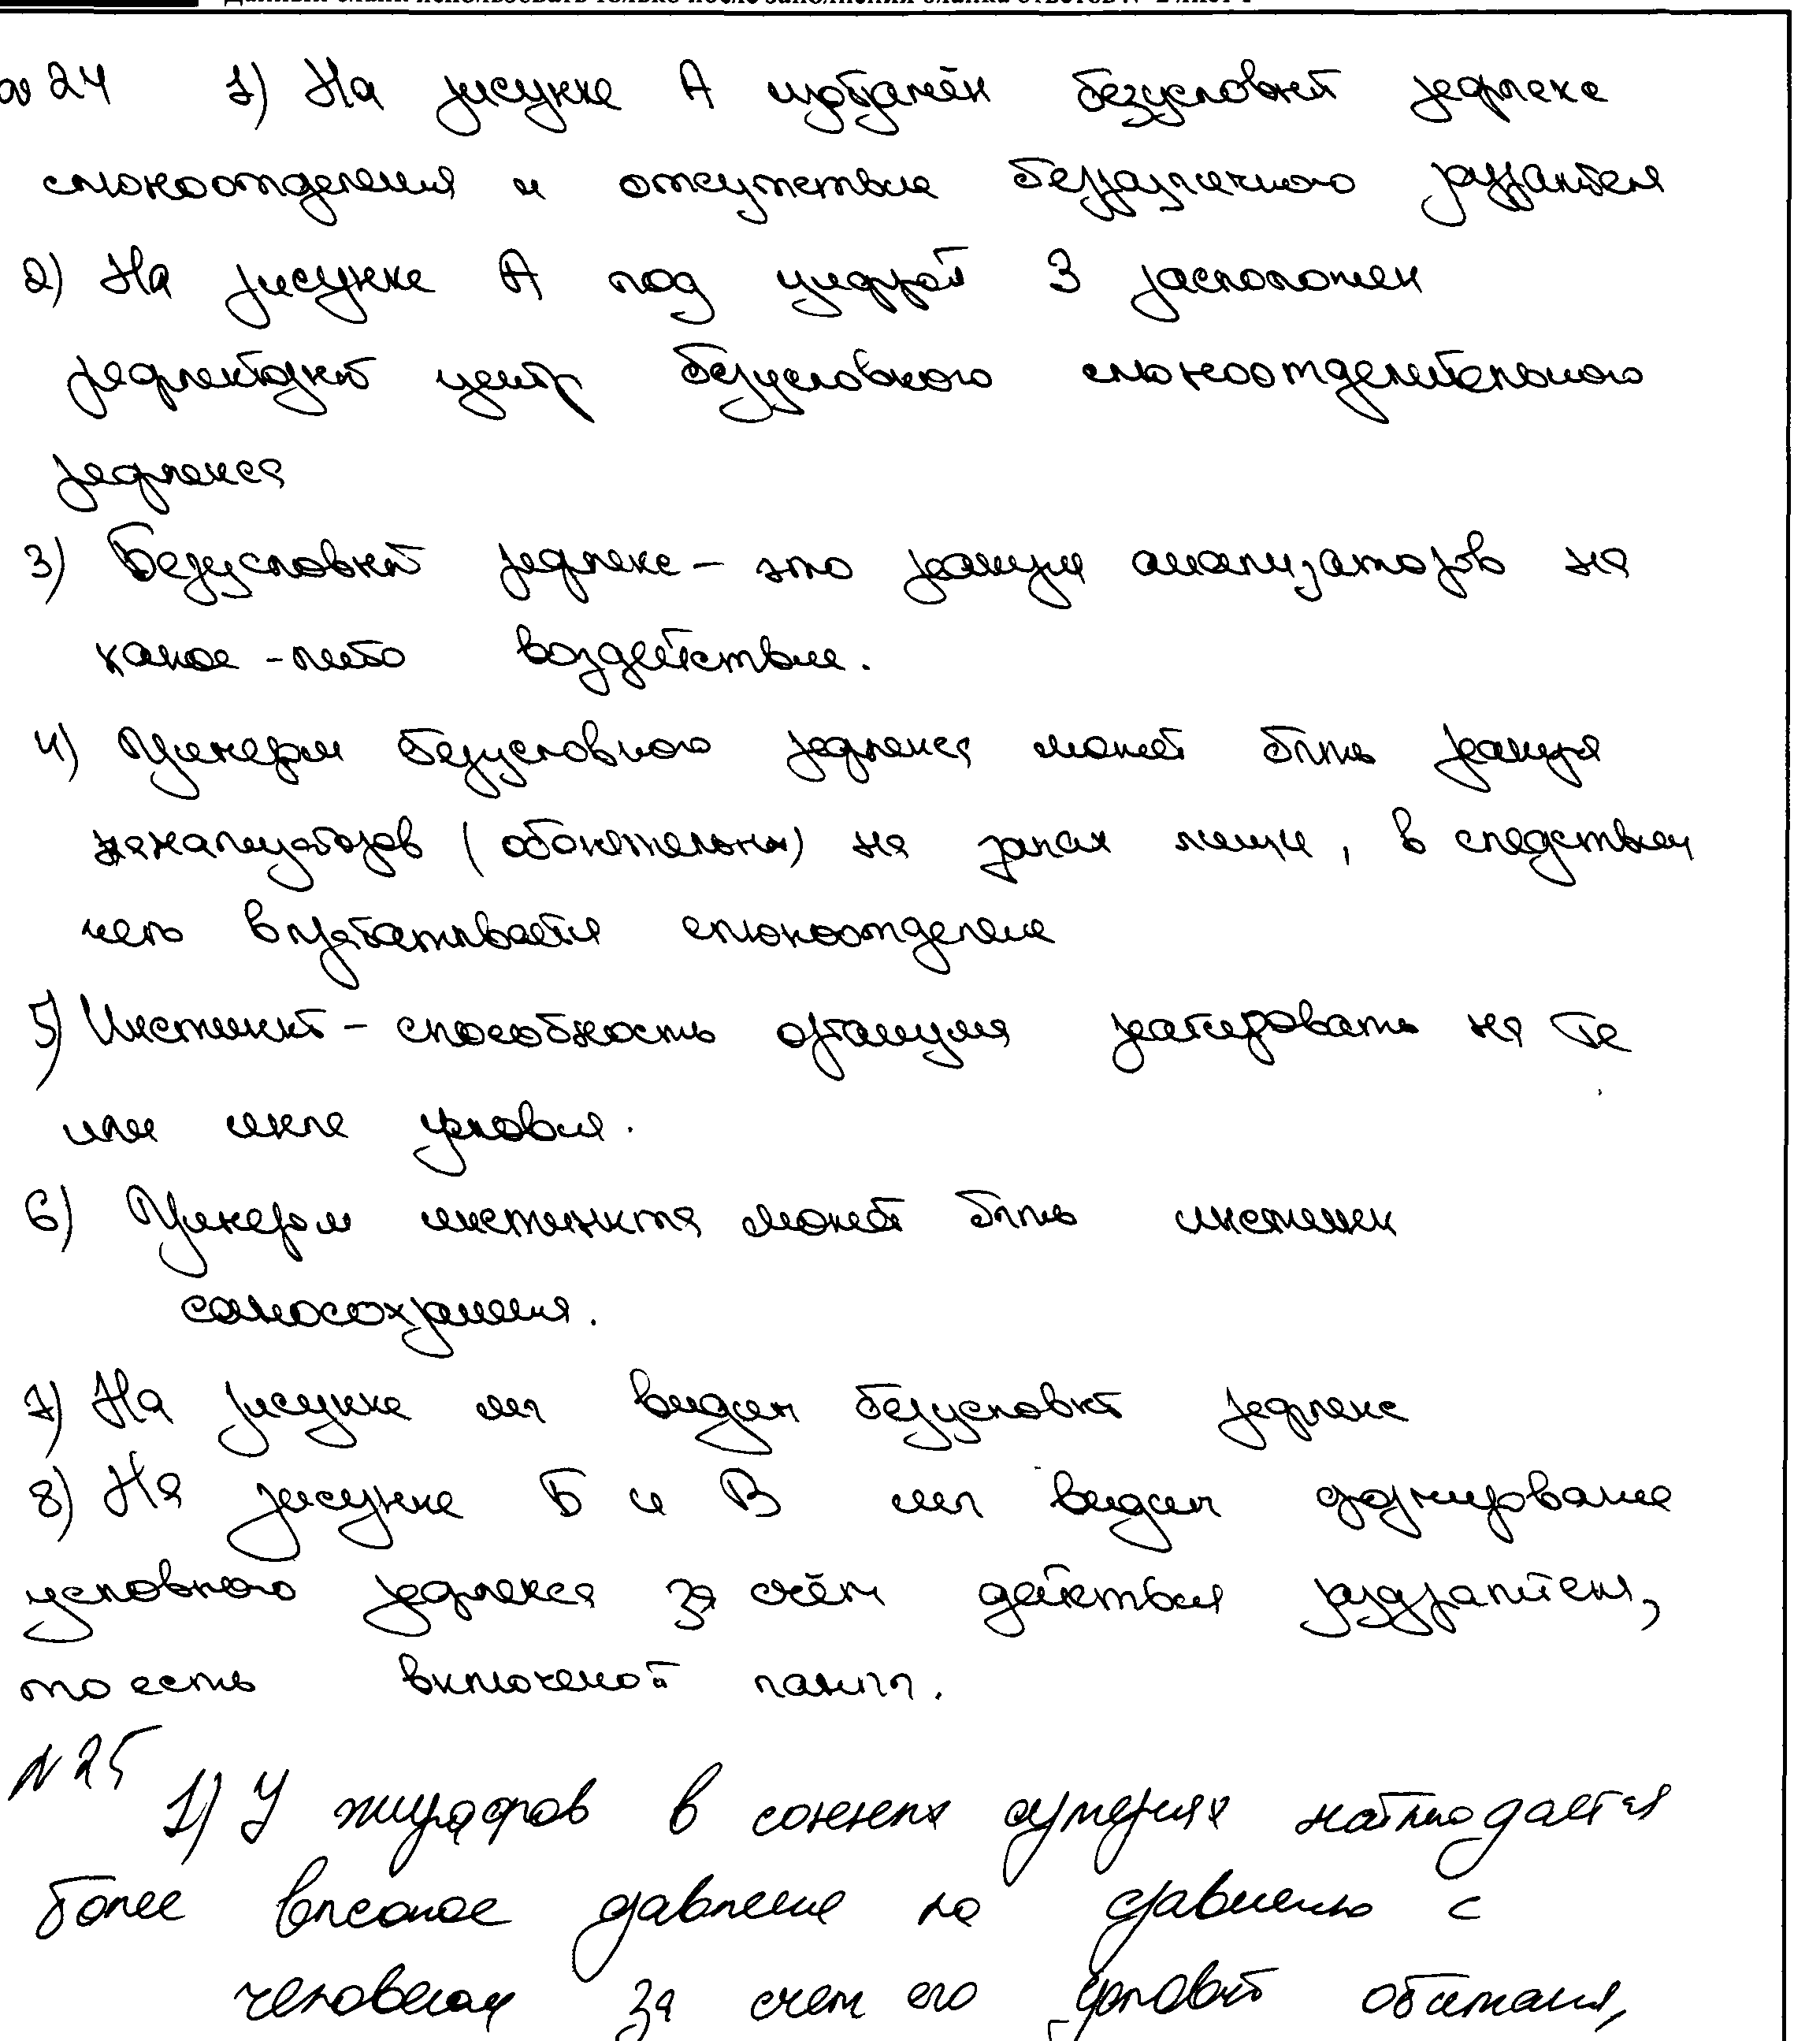 Данный бланк использовать только после заполнения бланка ответов № 2 лист 1
№ 24 1) На рисунке А изображён безусловный рефлекс
слюноотделения и отсутствие безразличного раздражителя
2) На рисунке А под цифрой 3 расположен
рефлекторный центр безусловного слюноотделительного
рефлекса
3) Безусловный рефлекс – это реакция анализаторов на
какое-либо воздействие.
4) Примером безусловного рефлекса может быть реакция
анализаторов (обонятельных) на запах пищи, в следствии
чего вырабатывается слюноотделение
5) Инстинкт – способность организма реагировать на те
или иные условия.
6) Примером инстинкта может быть инстинкт
самосохранения.
7) На рисунке мы видим безусловный рефлекс
8) На рисунке Б и В мы видим формирование
условного рефлекса за счёт действия раздражителя,
то есть включеной лампы.
№ 25
1) У жирафов в сонных артериях наблюдается
более высокое давление по сравнению с
человеком за счет его условий обитания,